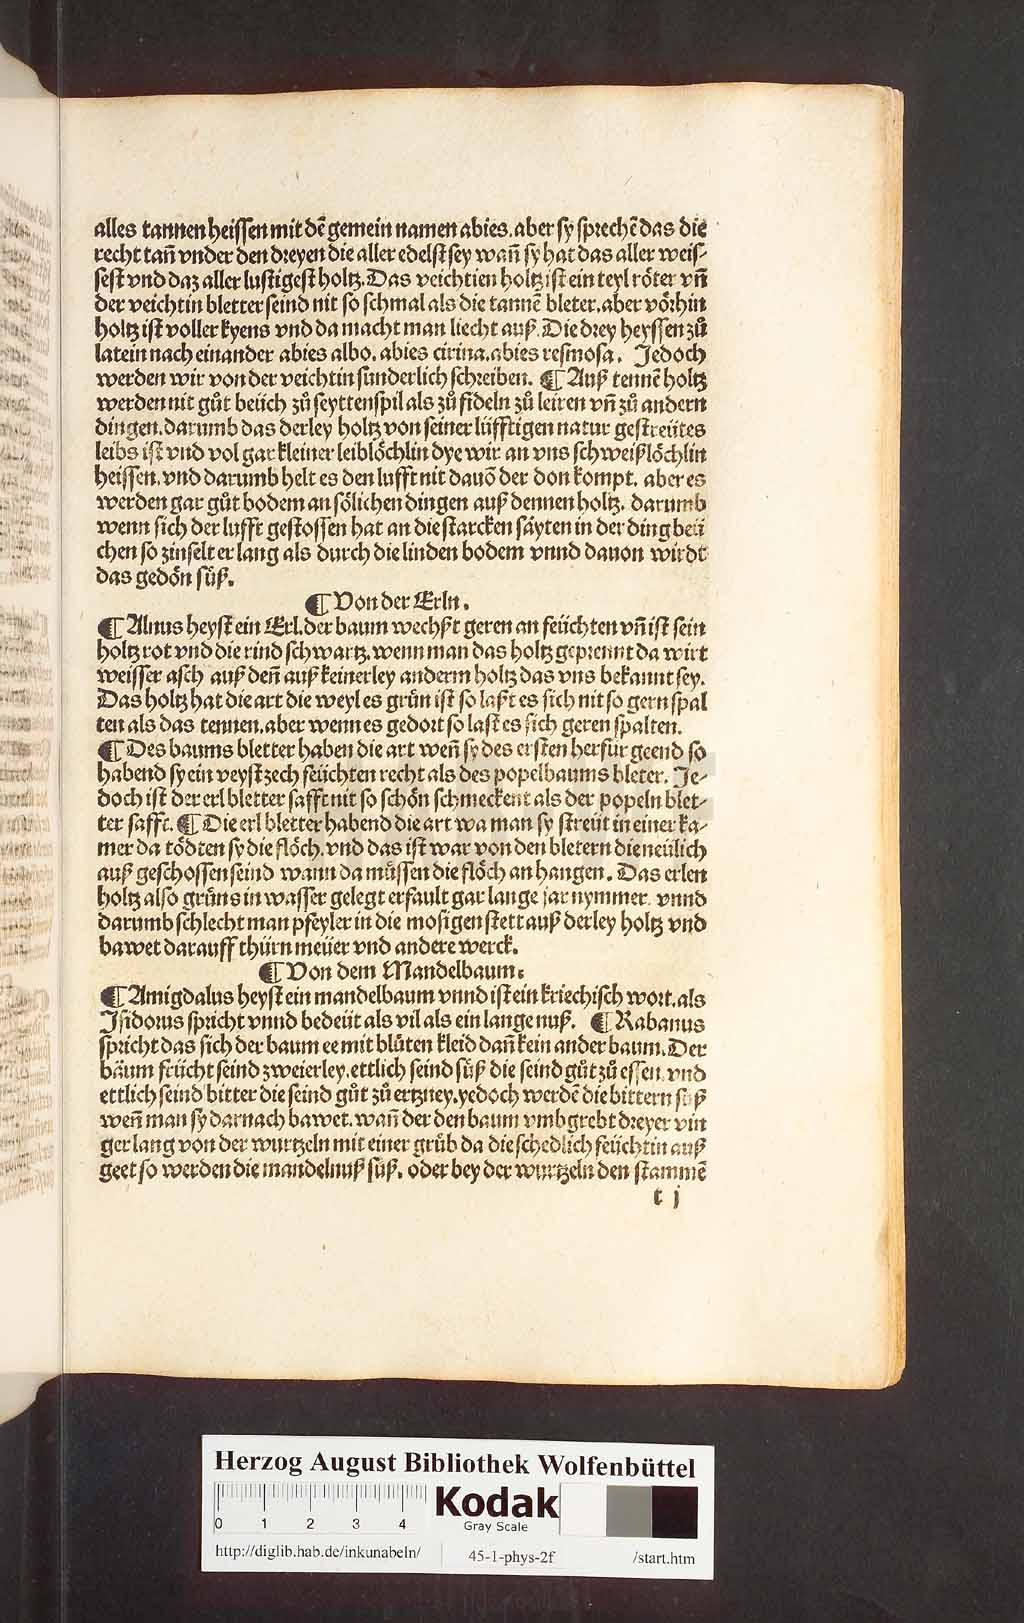 alles tannen heissen mit dē gemein namen abies. aber sy sprechē das die
recht tañ vnder den dreyen die aller edelst sey wañ sy hat das aller weis⸗
sest vnd daz aller lustigest holtz. Das veichtien holtz ist ein teyl röter vñ
der veichtin bletter seind nit so schmal als die tannē bleter. aber vörhin
holtz ist voller kyens vnd da macht man liecht auß. Die drey heyssen zů
latein nach einander abies albo. abies cirina. abies resmosa. Jedoch
werden wir von der veichtin sunderlich schreiben. ¶ Auß tennē holtz
werden nit gůt beüch zů seyttenspil als zů fideln zů leiren vñ zů andern
dingen. darumb das derley holtz von seiner lüfftigen natur gestreütes
leibs ist vnd vol gar kleiner leiblöchlin dye wir an vns schweißlöchlin
heissen. vnd darumb helt es den lufft nit dauō der don kompt. aber es
werden gar gůt bodem an sölichen dingen auß dennen holtz. darumb
wenn sich der lufft gestossen hat an die starcken säyten in der ding beü
chen so zinselt er lang als durch die linden bodem vnnd dauon wirdt
das gedön süß.
¶ Von der Erln.
¶ Alnus heyst ein Erl. der baum wechßt geren an feüchten vñ ist sein
holtz rot vnd die rind schwartz. wenn man das holtz geprennt da wirt
weisser asch auß deñ auß keinerley anderm holtz das vns bekannt sey.
Das holtz hat die art die weyl es grün ist so laßt es sich nit so gern spal
ten als das tennen. aber wenn es gedort so last es sich geren spalten.
¶ Des baums bletter haben die art weñ sy des ersten herfür geend so
habend sy ein veyst zech feüchten recht als des popelbaums bleter. Je⸗
doch ist der erl bletter safft nit so schön schmeckent als der popeln blet⸗
ter safft. ¶ Die erl bletter habend die art wa man sy streüt in einer ka⸗
mer da tödten sy die flöch. vnd das ist war von den bletern die neülich
auß geschossen seind wann da müssen die flöch an hangen. Das erlen
holtz also grüns in wasser gelegt erfault gar lange jar nymmer. vnnd
darumb schlecht man pfeyler in die mosigen stett auß derley holtz vnd
bawet darauff thürn meüer vnd andere werck.
¶ Von dem Mandelbaum.
¶ Amigdalus heyst ein mandelbaum vnnd ist ein kriechisch wort. als
Jsidorus spricht vnnd bedeüt als vil als ein lange nuß. ¶ Rabanus
spricht das sich der baum ee mit blüten kleid dañ kein ander baum. Der
bäum früicht seind zweierley. ettlich seind süß die seind gůt zů essen. vnd
ettlich seind bitter die seind gůt zů ertzney. yedoch werdē die bittern süß
weñ man sy darnach bawet. wañ der den baum vmbgrebt dreyer vin
ger lang von der wurtzeln mit einer grůb da die schedlich feüchtin auß
geet so werden die mandelnuß süß. oder bey der wurtzeln den stammē
t j
Herzog August Bibliothek Wolfenbüttel
0 1 2 3 4
Kodak
Gray Scale
http://diglib.hab.de/inkunabeln/ 45-1-phys-2f /start.htm